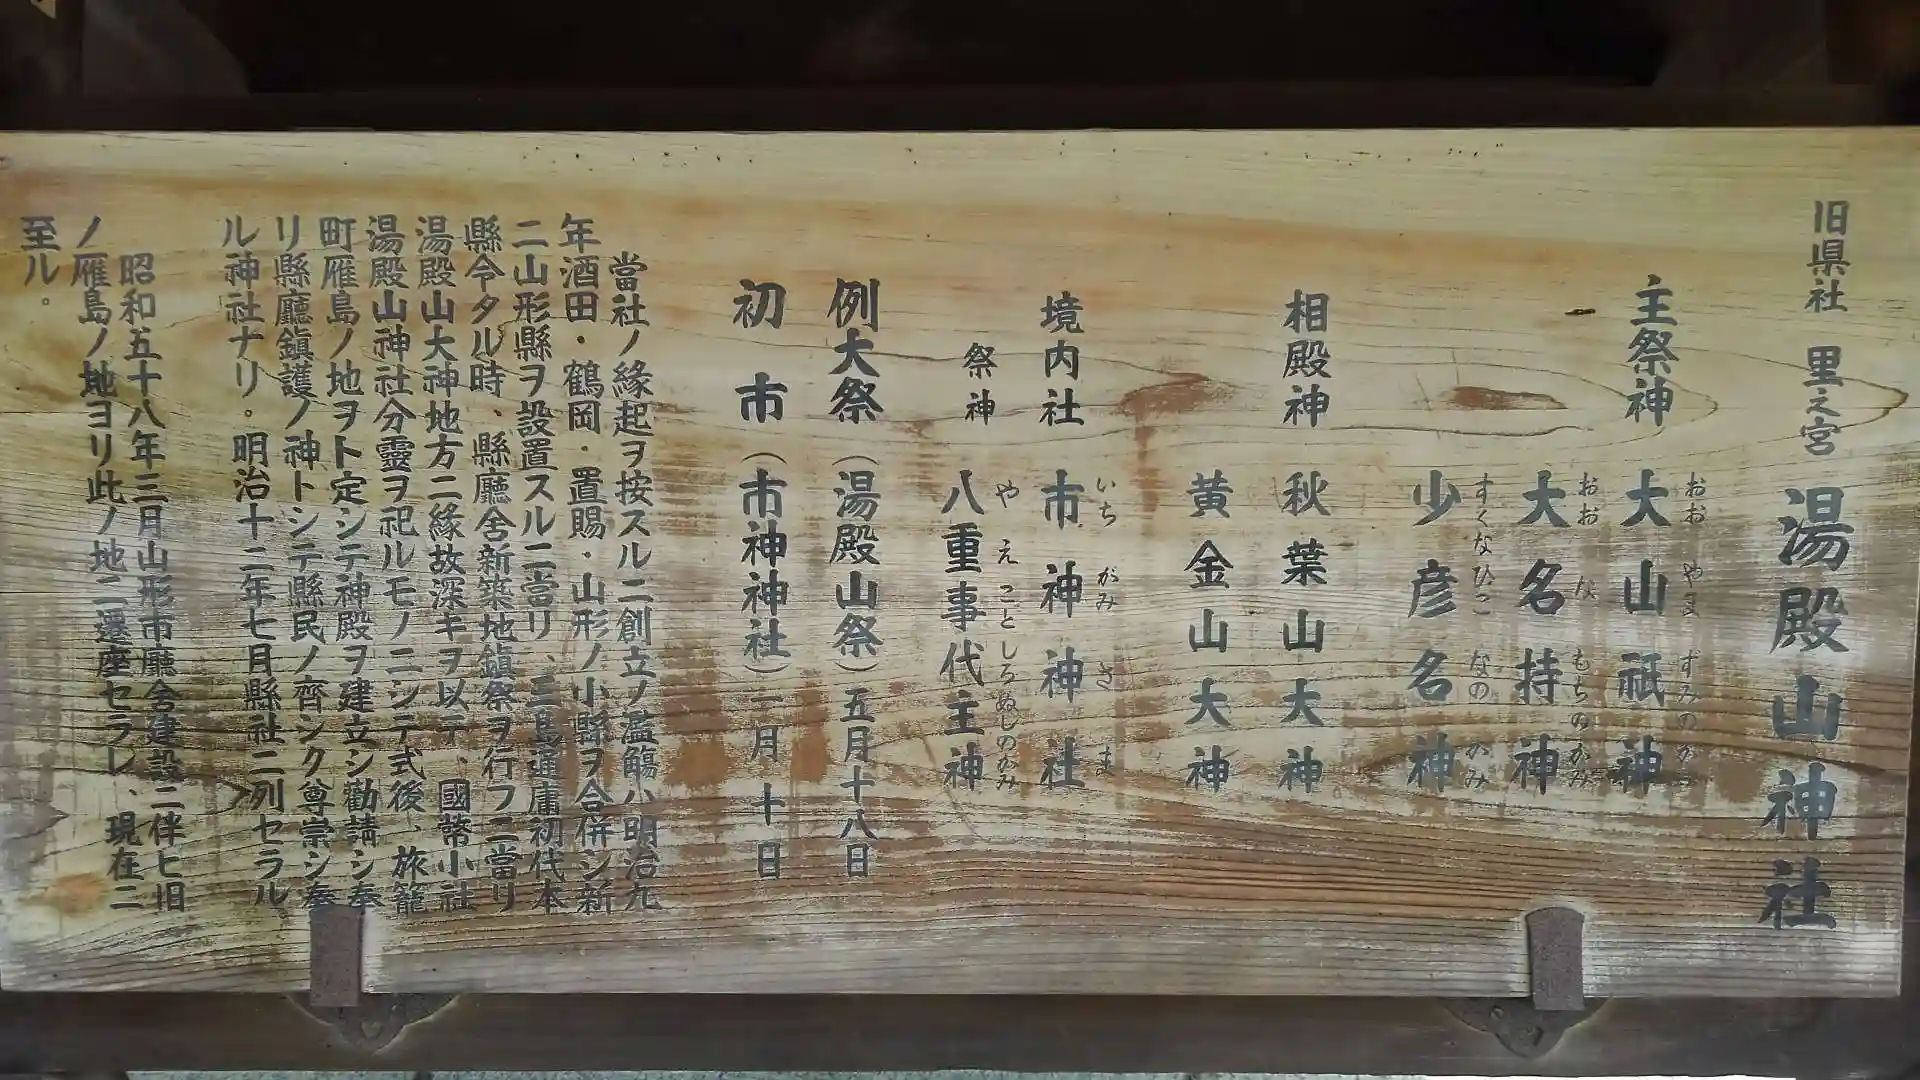 旧県社 里之宮 湯殿山神社
主祭神 大山祇神
おお やま ずみのかみ
大名持神
おお な もちのかみ
少彦名神
すくなひこ なの かみ
相殿神 秋葉山大神
黄金山大神
境内社 市神神社
いち がみ さま
祭神 八重事代主神
や え ことしろぬしのかみ
例大祭(湯殿山祭)五月十八日
初市(市神神社)一月十日
當社ノ緣起ヲ按スルニ創立ノ濫觴ハ明治九
年酒田・鶴岡・置賜・山形ノ小縣ヲ合併シ新
ニ山形縣ヲ設置スルニ當リ、三島通庸初代本
縣令タル時、縣廳舎新築地鎭祭ヲ行フニ當リ
湯殿山大神地方ニ緣故深キヲ以テ、國幣小社
湯殿山神社分靈ヲ祀ルモノニシテ式後、旅籠
町雁島ノ地ヲト定シテ神殿ヲ建立シ勸請シ奉
リ縣廳鎭護ノ神トシテ縣民ノ齊シク尊崇シ奉
ル神社ナリ。明治十二年七月縣社ニ列セラル
昭和五十八年三月山形市廳舎建設ニ伴ヒ旧
ノ雁島ノ地ヨリ此ノ地ニ遷座セラレ、現在ニ
至ル。